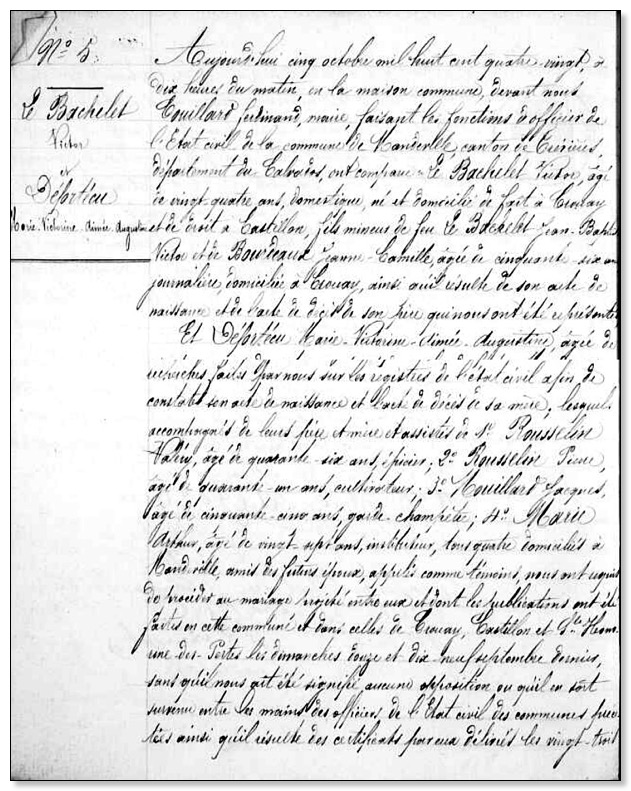 N° 5.
Le Bachelet
Victor
et
Déforticu
Marie-Victorine-Aimée-Augustine
Aujourd'hui cinq octobre mil huit cent quatre-vingt, à
dix heures du matin, en la maison commune, devant nous
Touillard ferdinand, maire, faisant les fonctions d'officier de
l'Etat civil de la commune de Mandeville, canton de Trévières,
département du Calvados, ont comparu = Le Bachelet Victor, âgé
de vingt-quatre ans, domestique, né et domicilié de fait à Crouay
et de droit à Castillon, fils mineur de feu Le Bachelet Jean-Baptiste
Victor et de Bourdeaux Jeanne-Camille, âgée de cinquante-six ans
journalière, domiciliée à Crouay, ainsi qu'il résulte de son acte de
naissance et de l'acte de décès de son père qui nous ont été représentés
Et Déforticu Marie-Victorine-Aimée-Augustine, âgée de
recherches faites par nous sur les registres de l'état civil afin de
constater son acte de naissance et l'acte de décès de sa mère; lesquels
accompagnés de leurs père et mère et assistés de 1° Rousselin
Valéry, âgé de quarante-six ans, épicier; 2° Rousselin Pierre,
âgé de quarante-un ans, cultivateur; 3° Mouillard Jacques,
âgé de cinquante-cinq ans, garde-champêtre; 4° Marie
Arthur, âgé de vingt-sept ans, instituteur, tous quatre domiciliés à
Mandeville, amis des futurs époux, appelés comme témoins, nous ont requis
de procéder au mariage projeté entre eux et dont les publications ont été
faites en cette commune et dans celles de Crouay, Castillon et Ste Honorine
des-Pertes les dimanches douze et dix-neuf septembre dernier,
sans qu'il nous ait été signifié aucune opposition ou qu'il en soit
survenu entre les mains des officiers de l'Etat civil des communes préci-
tées ainsi qu'il résulte des certificats par eux délivrés les vingt-trois